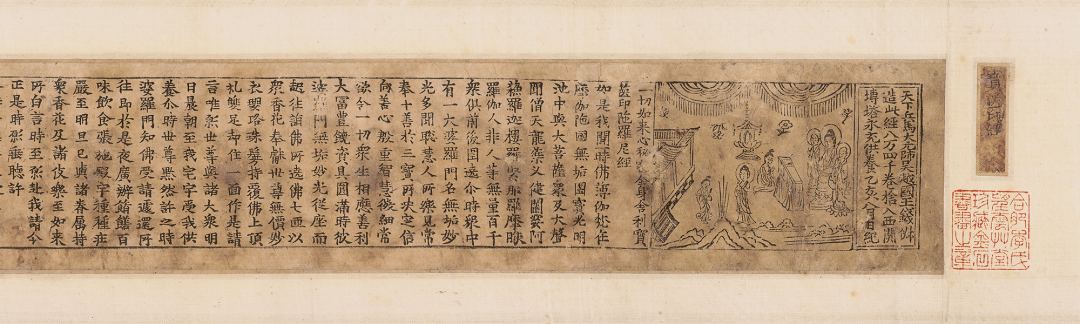 天下兵馬大元帥吳越國王錢俶
造此經八萬四千卷捨入西關
塼塔永充供養乙亥八月日紀
一切如來心秘密全身舍利寶
篋印陀羅尼經
如是我聞一時佛薄伽梵在
摩伽陁國無垢園寶光明
池中與大菩薩眾及大聲
聞僧天龍藥叉健闥婆阿
蘇羅迦樓羅緊那羅摩睺
羅伽人非人等無量百千
衆俱前後圍遶尒時衆中
有一大婆羅門名無垢妙
光多聞聰慧人所樂見常
奉十善於三寶所决定信
向善心殷重智慧微細常
欲令一切衆生相應善利
大富豐饒資具圓滿時彼
婆羅門無垢妙光從座而
起往詣佛所遶佛七匝以
衆香花奉獻世尊無價妙
衣瓔珞珠鬘持覆佛上頂
礼雙足却住一面作是請
言唯願世尊與諸大衆明
日晨朝至我宅中受我供
養尒時世尊默然許之時
婆羅門知佛受請遽還所
住即於是夜廣辦餚饍百
味飲食張施殿宇種種莊
嚴至明旦已與諸眷屬持
衆香花及諸伎樂至如來
所白言時至願赴我請今
正是時願垂聽許
合肥李氏
望雲艸堂
珍藏金石
書畫之章